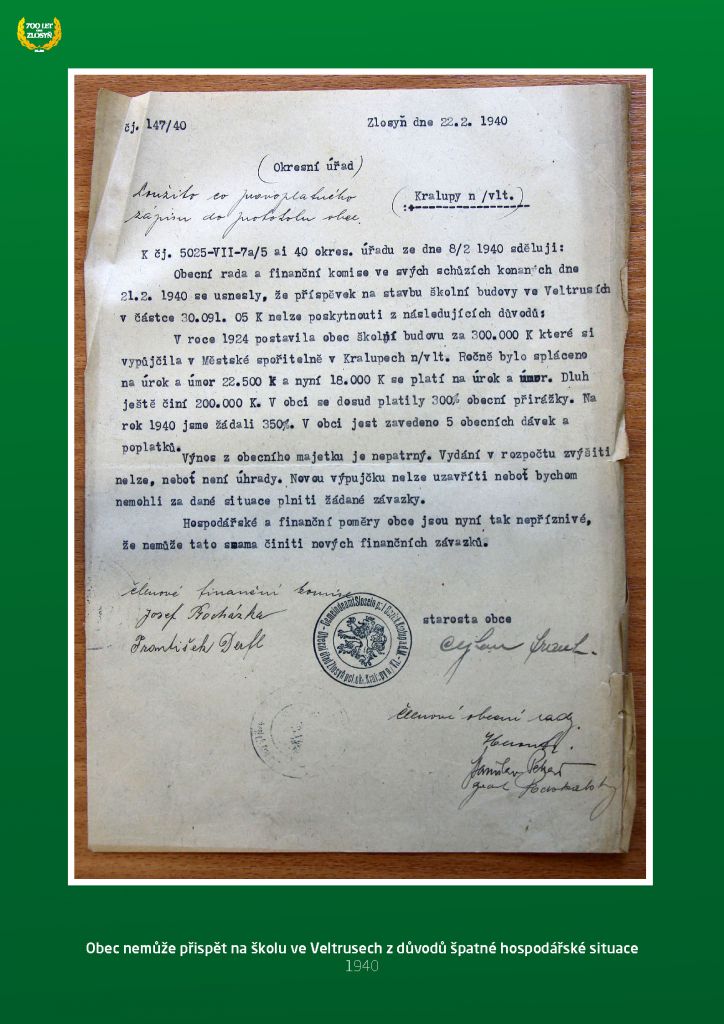 700 LET
ZLOSYŇ
čj. 147/40
Zlosyň dne 22.2. 1940
(Okresní úřad)
Použito co pravoplatného
zápisu do protokolu obce.
(Kralupy n /vlt.)
K čj. 5025-VII-7a/5 ai 40 okres. úřadu ze dne 8/2 1940 sděluji:
Obecní rada a finanční komise ve svých schůzích konaných dne
21.2. 1940 se usnesly, že příspěvek na stavbu školní budovy ve Veltrusích
v částce 30.091. 05 K nelze poskytnouti z následujících důvodů:
V roce 1924 postavila obec školní budovu za 300.000 K které si
vypůjčila v Městské spořitelně v Kralupech n/vlt. Ročně bylo spláceno
na úrok a úmor 22.500 K a nyní 18.000 K se platí na úrok a úmor. Dluh
ještě činí 200.000 K. V obci se dosud platily 300% obecní přirážky. Na
rok 1940 jsme žádali 350%. V obci jest zavedeno 5 obecních dávek a
poplatků.
Výnos z obecního majetku je nepatrný. Vydání v rozpočtu zvýšiti
nelze, neboť není úhrady. Novou výpujčku nelze uzavříti neboť bychom
nemohli za dané situace plniti žádané závazky.
Hospodářské a finanční poměry obce jsou nyní tak nepříznivé,
že nemůže tato smama činiti nových finančních závazků.
členové finanční komise
Josef Procházka
František Derfl
Obecní úřad Zlosyň
Gemeindeamt
starosta obce
členové obecní rady
Jaroslav
Obec nemůže přispět na školu ve Veltrusech z důvodů špatné hospodářské situace
1940